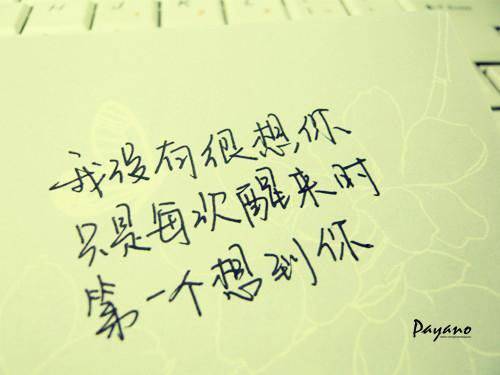 我没有很想你
只是每次醒来时
第一个想到你
Payano